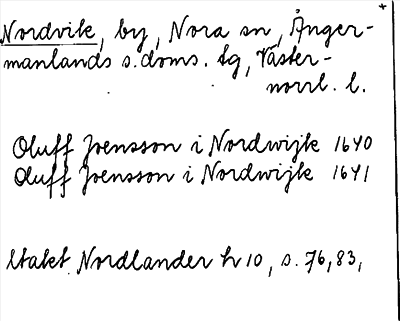 Nordvik, by, Nora sn, Ånger-
manlands s. doms. tg, Väster-
norrl. l.
Oluff Joensson i Nordwijk 1640
Oluff Joensson i Nordwijk 1641
Utakt Nordlander h 10, s. 76, 83,